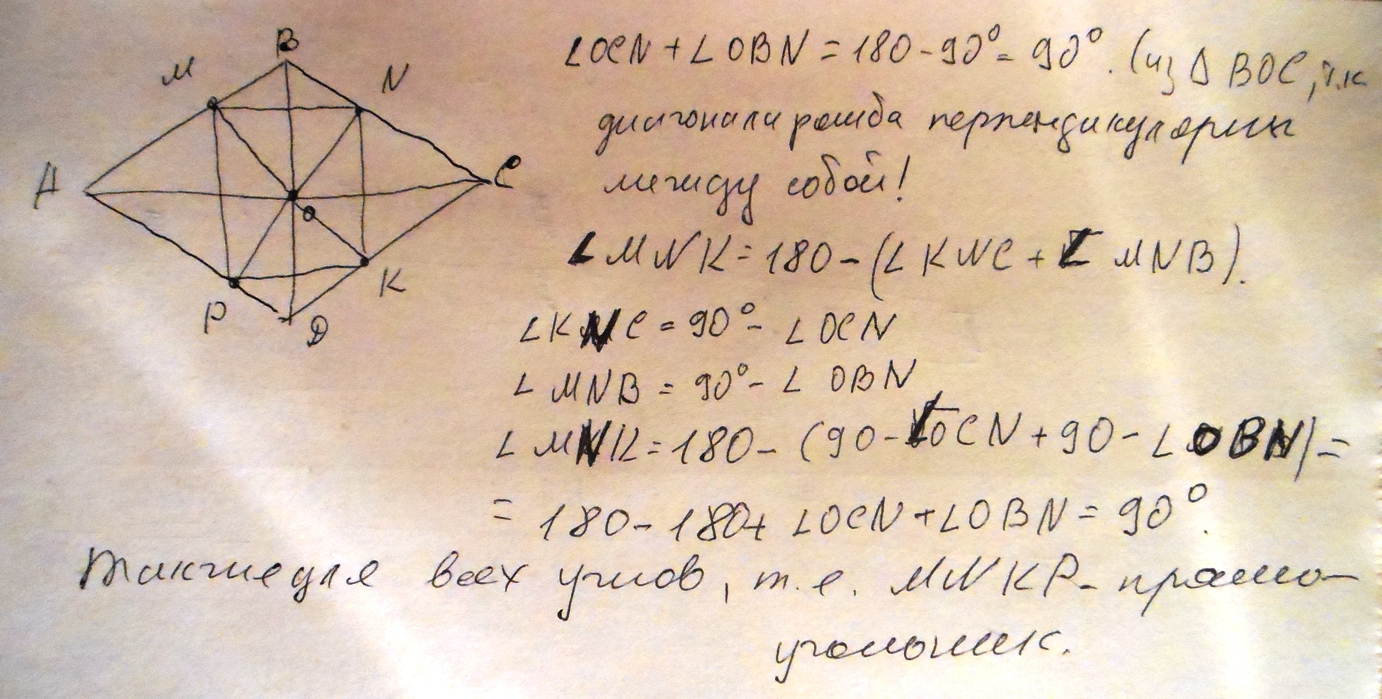 B
M
N
A
C
O
P
K
D
∠OCN + ∠OBN = 180 - 90° = 90°. (из Δ BOC, т.к
диагонали ромба перпендикулярны
между собой!
∠MNK = 180 - (∠KNC + ∠MNB).
∠KNC = 90° - ∠OCN
∠MNB = 90° - ∠OBN
∠MNK = 180 - (90 - ∠OCN + 90 - ∠OBN) =
= 180 - 180 + ∠OCN + ∠OBN = 90°.
Также для всех углов, т.е. MNKP - прямо-
угольник.